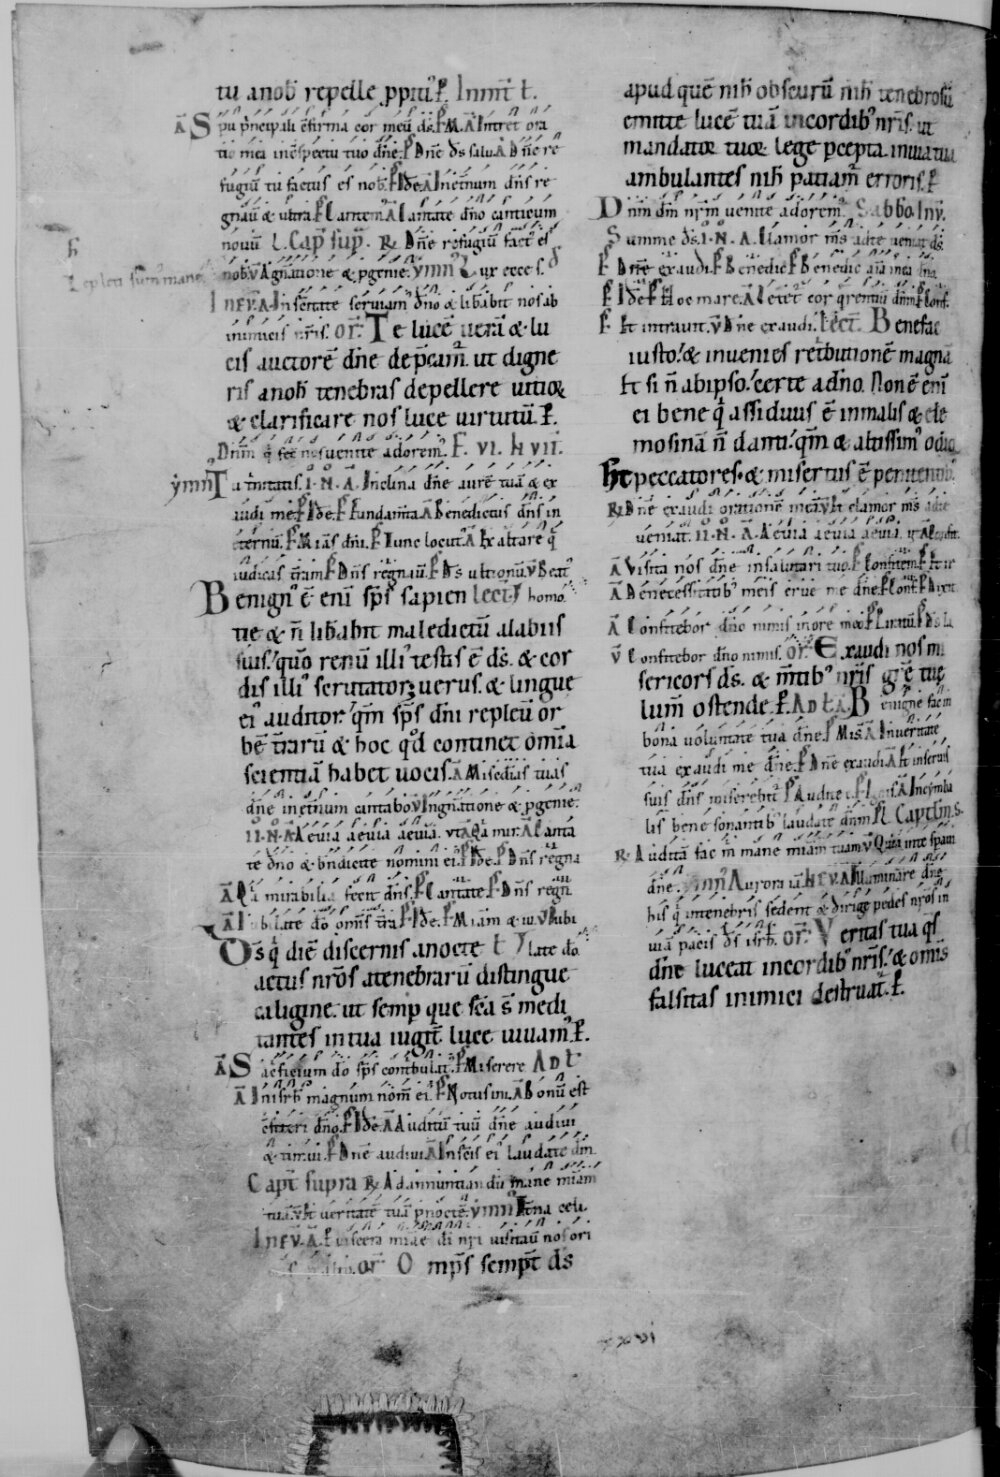 tu a nob̄ repelle ꝓpitiꝰ. ꝑ. In mꝶ̄ ł.
Ā Spū prīncipali cfirma cor meū ds̄. Ꝑ M. Ā Intret ora
tio mea in cspectu tuo dn̄e. Ꝑ Dn̄e ds̄ salu. Ā Dn̄e re
fugiū tu factus es nob̄. Ꝑ Ip̄e. Ā In et̄num dn̄s re
gnab̄ & ultra. Ꝑ Cantem̄. Ā Cantate dn̄o canticum
nouū. L. Cap̄ sup̄. ℞ Dn̄e refugiū factꝰ es
nob̄. V̄ A gn̄atione & ꝓgenie. ymnꝰ Lux ecce s.
h
Repleti sumꝰ mane
In eu. A. In sc̄itate seruiamꝰ dn̄o & libabit nos ab
inimicis nr̄is. or̄. Te lucē uerā & lu
cis auctorē dn̄e dep̄camꝰ. ut digne
ris a nob̄ tenebras depellere uitioꝝ
& clarificare nos luce uirtutū. ꝑ.
Dn̄m q̇ fec̄ nos uenite adorem̄. F. VI. H VII.
ymnꝰ Tu t̄nitatis. I. N. A. Inclina dn̄e aurē tuā & ex
audi me. Ꝑ Ip̄e. Ꝑ Fundam̄ta. Ā Benedictus dn̄s in
eternū. Ꝑ Mīas dn̄i. Ꝑ Tunc locut. Ā Exaltare q̇
iudicas t̄ram. Ꝑ Dn̄s regnauit. Ꝑ Ds̄ ultionū. V̄ Beatꝰ
Benignꝰ ē enī sp̄s sapien lect̄. homo.
tie & n̄ libabit maledictū a labiis
suis. quō renū illiꝰ testis ē ds̄. & cor
dis illiꝰ scrutator ē uerus. & lingue
eiꝰ auditor. qm̄ sp̄s dn̄i repleū or
bē t̄rarū & hoc qd̄ continet omīa
scientiā habet uocis. Ā Misc̄dias tuas
dn̄e in et̄num cantabo. V̄ In gn̄atione & ꝓgenie.
II. N. A. Aeuia aeuia aeuia. vt A Q̄a mir. Ā Canta
te dn̄o & bn̄dicite nomini eiꝰ. Ꝑ Ip̄e. Ꝑ Dn̄s regna
Ā Q̄a mirabilia fecit dn̄s. Ꝑ Cantate. Ꝑ Dn̄s regn̄
Ā Iubilate dō omīs t̄ra. Ꝑ Ip̄e. Ꝑ Miam & iu. V̄ Iubi
Ds̄ q̇ diē discernis a nocte late dō.
actus nr̄os a tenebrarū distingue
caligine. ut semp̄ que sc̄a s̄ medi
tantes in tua iugit̄ luce uiuamꝰ. ꝑ.
Ā Sacficium dō sp̄s cont̄bulat̄. Ꝑ Miserere Ad ł.
Ā In isrł magnum nom̄ eiꝰ. Ꝑ Notus in. Ā Bonū est
cfiteri dn̄o. Ꝑ Ip̄e. Ā Auditū tuū dn̄e audiui
& timui. Ꝑ Dn̄e audiui. Ā In sc̄is eiꝰ laudate dn̄m.
Capt̄ supra ℞ Ad annuntiandū mane mīam
tuā. V̄ Et ueritatē tuā p̄ noctē. ymnꝰ Et̄na celi
In eu. A. Ꝑ uiscera mīae di nr̄i uisitauit nos ori
or̄ Omp̄s semp̄t ds̄
apud quē nih̄ obscurū nih̄ tenebrosū
emitte lucē tuā in cordibꝰ nr̄is. ut
mandatoꝝ tuoꝝ lege p̄cepta. in uia tua
ambulantes nih̄ patiam̄ erroris. ꝑ
Dn̄m dm̄ nr̄m uenite adorem̄. Sabbo. Inv̄.
Summe ds̄. I. N. A. Clamor ms̄ ad te ueniat ds̄.
Ꝑ Dn̄e exaudi. Ꝑ Benedic Ꝑ Benedic aīa mea dn̄o.
Ꝑ Ip̄e. Ꝑ Hoc mare. A Letet̄ cor q̄rentiū dn̄m. Ꝑ Conf.
Ꝑ Et intrauit. V̄ Dn̄e exaudi. Lect̄. Benefac
iusto. & inuenies ret̄butionē magnā
Et si n̄ ab ipso. certe a dn̄o. Non ē enī
ei bene q̇ assiduus ē in malis & ele
mosinā n̄ danti. qm̄ & altissimꝰ odio
Ht peccatores. & misertus ē penitentibꝰ.
℞ Dn̄e exaudi orationē meā. V̄ Et clamor ms̄ ad te
ueniat. II. N. A. Aeuia aeuia aeuia.
Ā Visita nos dn̄e in salutari tuo. Ꝑ Confitem̄. Ꝑ
Ā De necessitatibꝰ meis erue me dn̄e. Ꝑ Conf. Ꝑ Dixit
Ā Confitebor dn̄o nimis in ore meo. Ꝑ
V̄ Confitebor dn̄o nimis. or̄. Exaudi nos mi
sericors ds̄. & m̄tibꝰ nr̄is gr̄ę tuę
lum̄ ostende. ꝑ. Ad ł. A. Benigne fac in
bona uoluntate tua dn̄e. Ꝑ Mis. Ā In ueritate
tua exaudi me dn̄e. Ꝑ Dn̄e exaudi. Ā Et in seruis
suis dn̄s miserebit̄. Ꝑ Ā In cymba
lis bene sonantibꝰ laudate dn̄m. Capt̄
℞ Auditā fac m̄ mane mīam tuam. V̄ Quia in te spaui
dn̄e. ymnꝰ Aurora iā. In eu. A. Illuminare dn̄e
his q̇ in tenebris sedent & dirige pedes nr̄os in
uiā pacis ds̄ isrł. or̄. Veritas tua q̄s
dn̄e luceat in cordibꝰ nr̄is. & omīs
falsitas inimici destruat̄. ꝑ.
xxvi